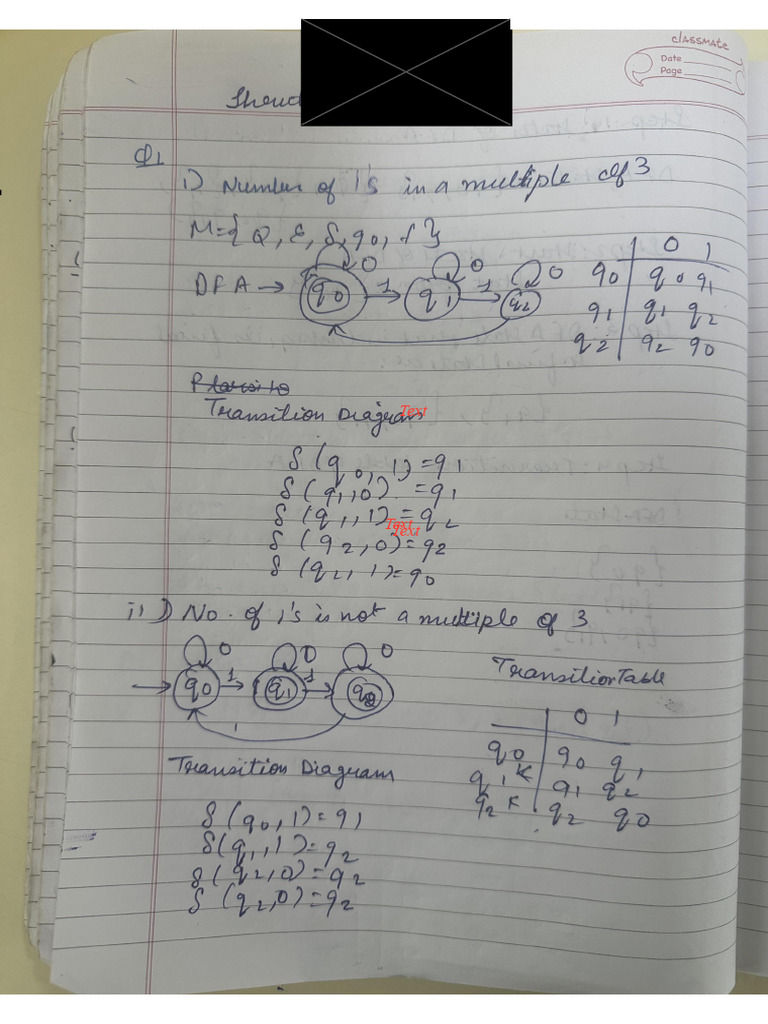 classmate
Date
Page
Q1
i) Number of 1's in a multiple of 3
M={ Q, Σ, δ, q0, f }
DFA →
0 0 0
q0 1 q1 1 q2
0 1
q0 q0 q1
q1 q1 q2
q2 q2 q0
Transition Diagram
Text
δ(q0, 1)=q1
δ(q1,0) =q1
δ(q1,1)=q2
Text
Text
δ(q2,0)=q2
δ(q2,1)=q0
ii) No. of 1's is not a multiple of 3
0 0 0
q0 1 q1 1
1
Transition Table
0 1
q0 q0 q1
q1 q1 q2
q2 q2 q0
Transition Diagram
δ(q0,1)=q1
δ(q1,1)=q2
δ(q2,0)=q2
δ(q2,0)=q2